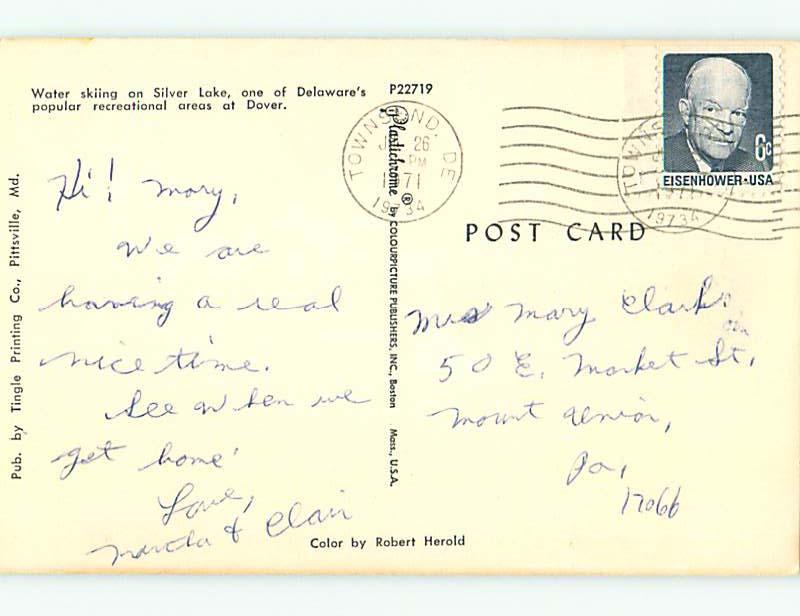 Water skiing on Silver Lake, one of Delaware's
popular recreational areas at Dover.
P22719
TOWNSEND, DE
26
PM
1971
19734
6c
EISENHOWER·USA
19734
POST CARD
Pub. by Tingle Printing Co., Pittsville, Md.
Plastichrome ® by COLOURPICTURE PUBLISHERS, INC., Boston Mass., U.S.A.
Hi! Mary,
We are
having a real
nice time.
See when we
get home
Love,
&  Clair
Mrs Mary Clark
50 E. Market St.
Mount
Pa.
17066
Color by Robert Herold